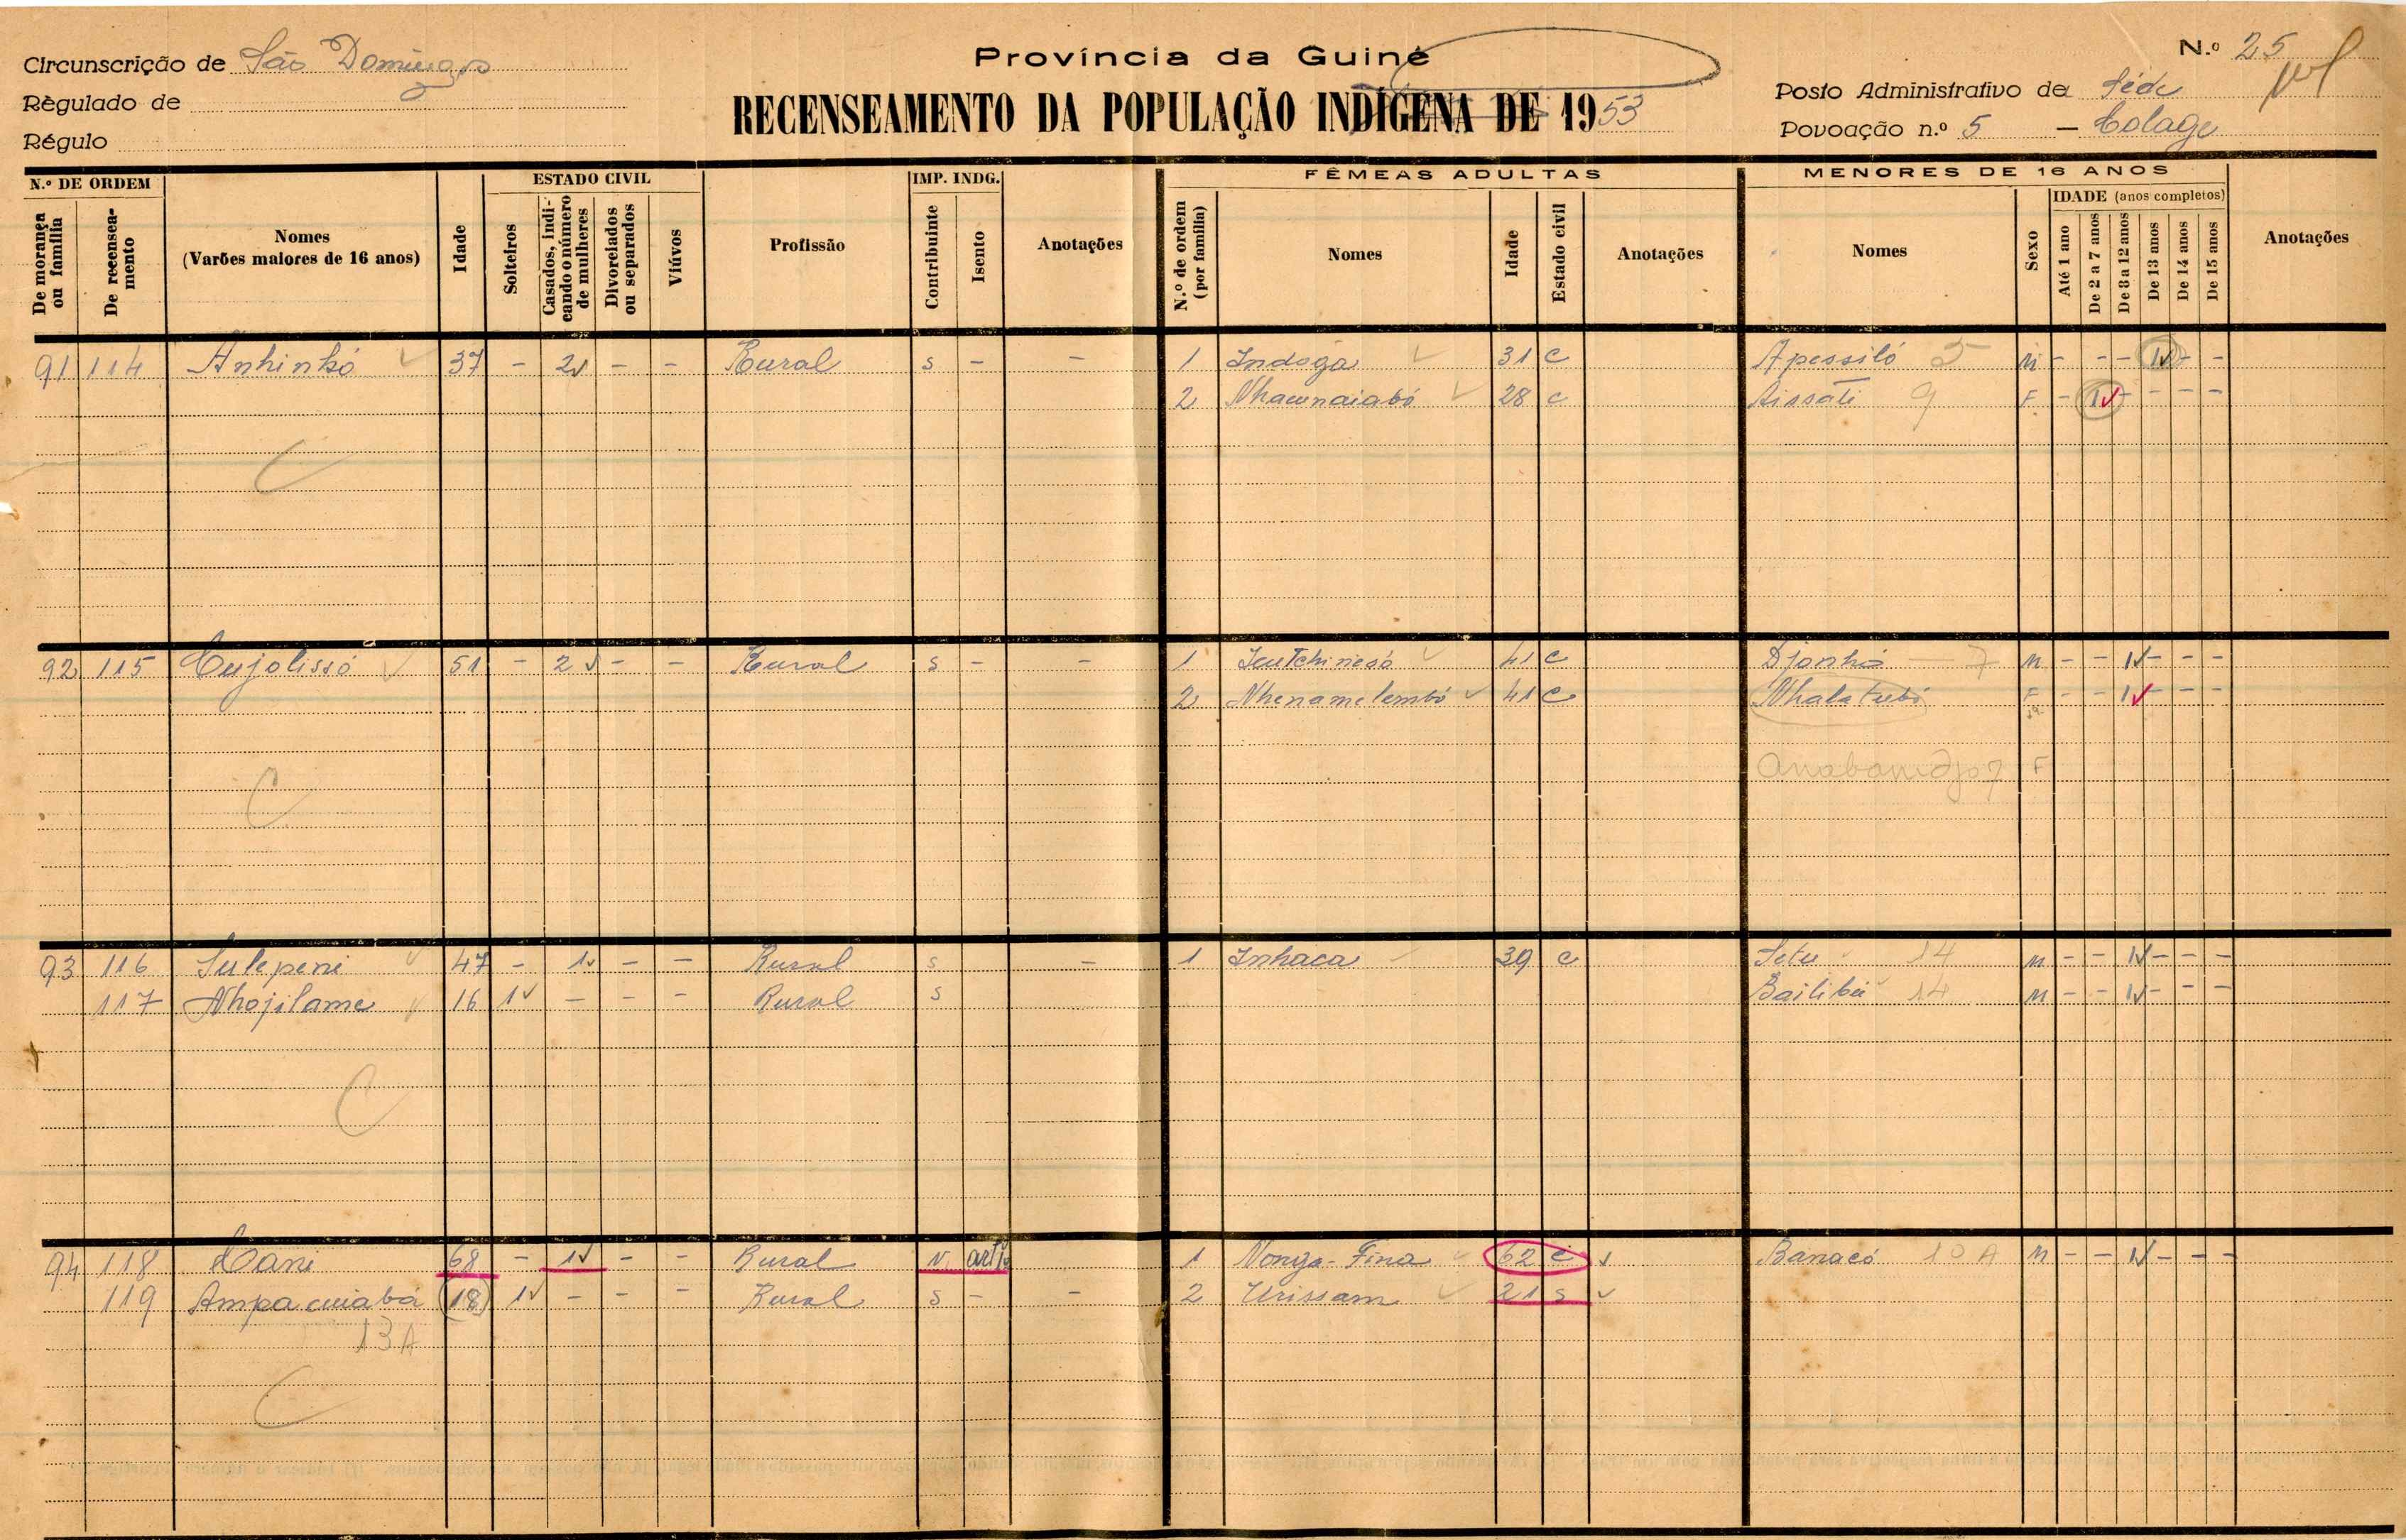 Província da Guiné
Nº 25
Circunscrição de São Domingos
Règulado de
Régulo
RECENSEAMENTO DA POPULAÇÃO INDÍGENA DE 1953
Posto Administrativo de Séde
Povoação n.º 5 — Colage
N.º DE ORDEM
De morança ou família
De recenseamento
Nomes
(Varões maiores de 16 anos)
Idade
ESTADO CIVIL
Solteiros
Casados, indicando o número de mulheres
Divorciados ou separados
Viúvos
Profissão
IMP. INDG.
Contribuinte
Isento
Anotações
FÊMEAS ADULTAS
N.º de ordem (por família)
Nomes
Idade
Estado civil
Anotações
MENORES DE 16 ANOS
Nomes
Sexo
IDADE (anos completos)
Até 1 ano
De 2 a 7 anos
De 8 a 12 anos
De 13 anos
De 14 anos
De 15 anos
Anotações
91 114 Anhinkó 37 - 2 - - Rural s - - 1 Indoga 31 c Apessiló 5 M - - - 1 - -
2 Nhacunaiabó 28 c Aissáti 9 F - 1 - - - -
92 115 Cujolissó 51 - 2 - - Rural s - - 1 41 c Djonhó 7 M - - 1 - - -
2 Nhenamelembó 41 c Nhalatubó F - - 1 - - -
F
93 116 Sulepeni 47 - 1 - - Rural s - 1 Inhaca 39 c Setu 14 M - - 1 - - -
117 Nhojilame 16 1 - - - Rural s Bailibú 14 M - - 1 - - -
94 118 Cani 68 - 1 - - Rural N 1 Nonga-Fina 62 c Banacó 10 A M - - 1 - - -
119 Ampacuiabá (18) 1 - - - Rural s - - 2 Urissam 21 s
13 A